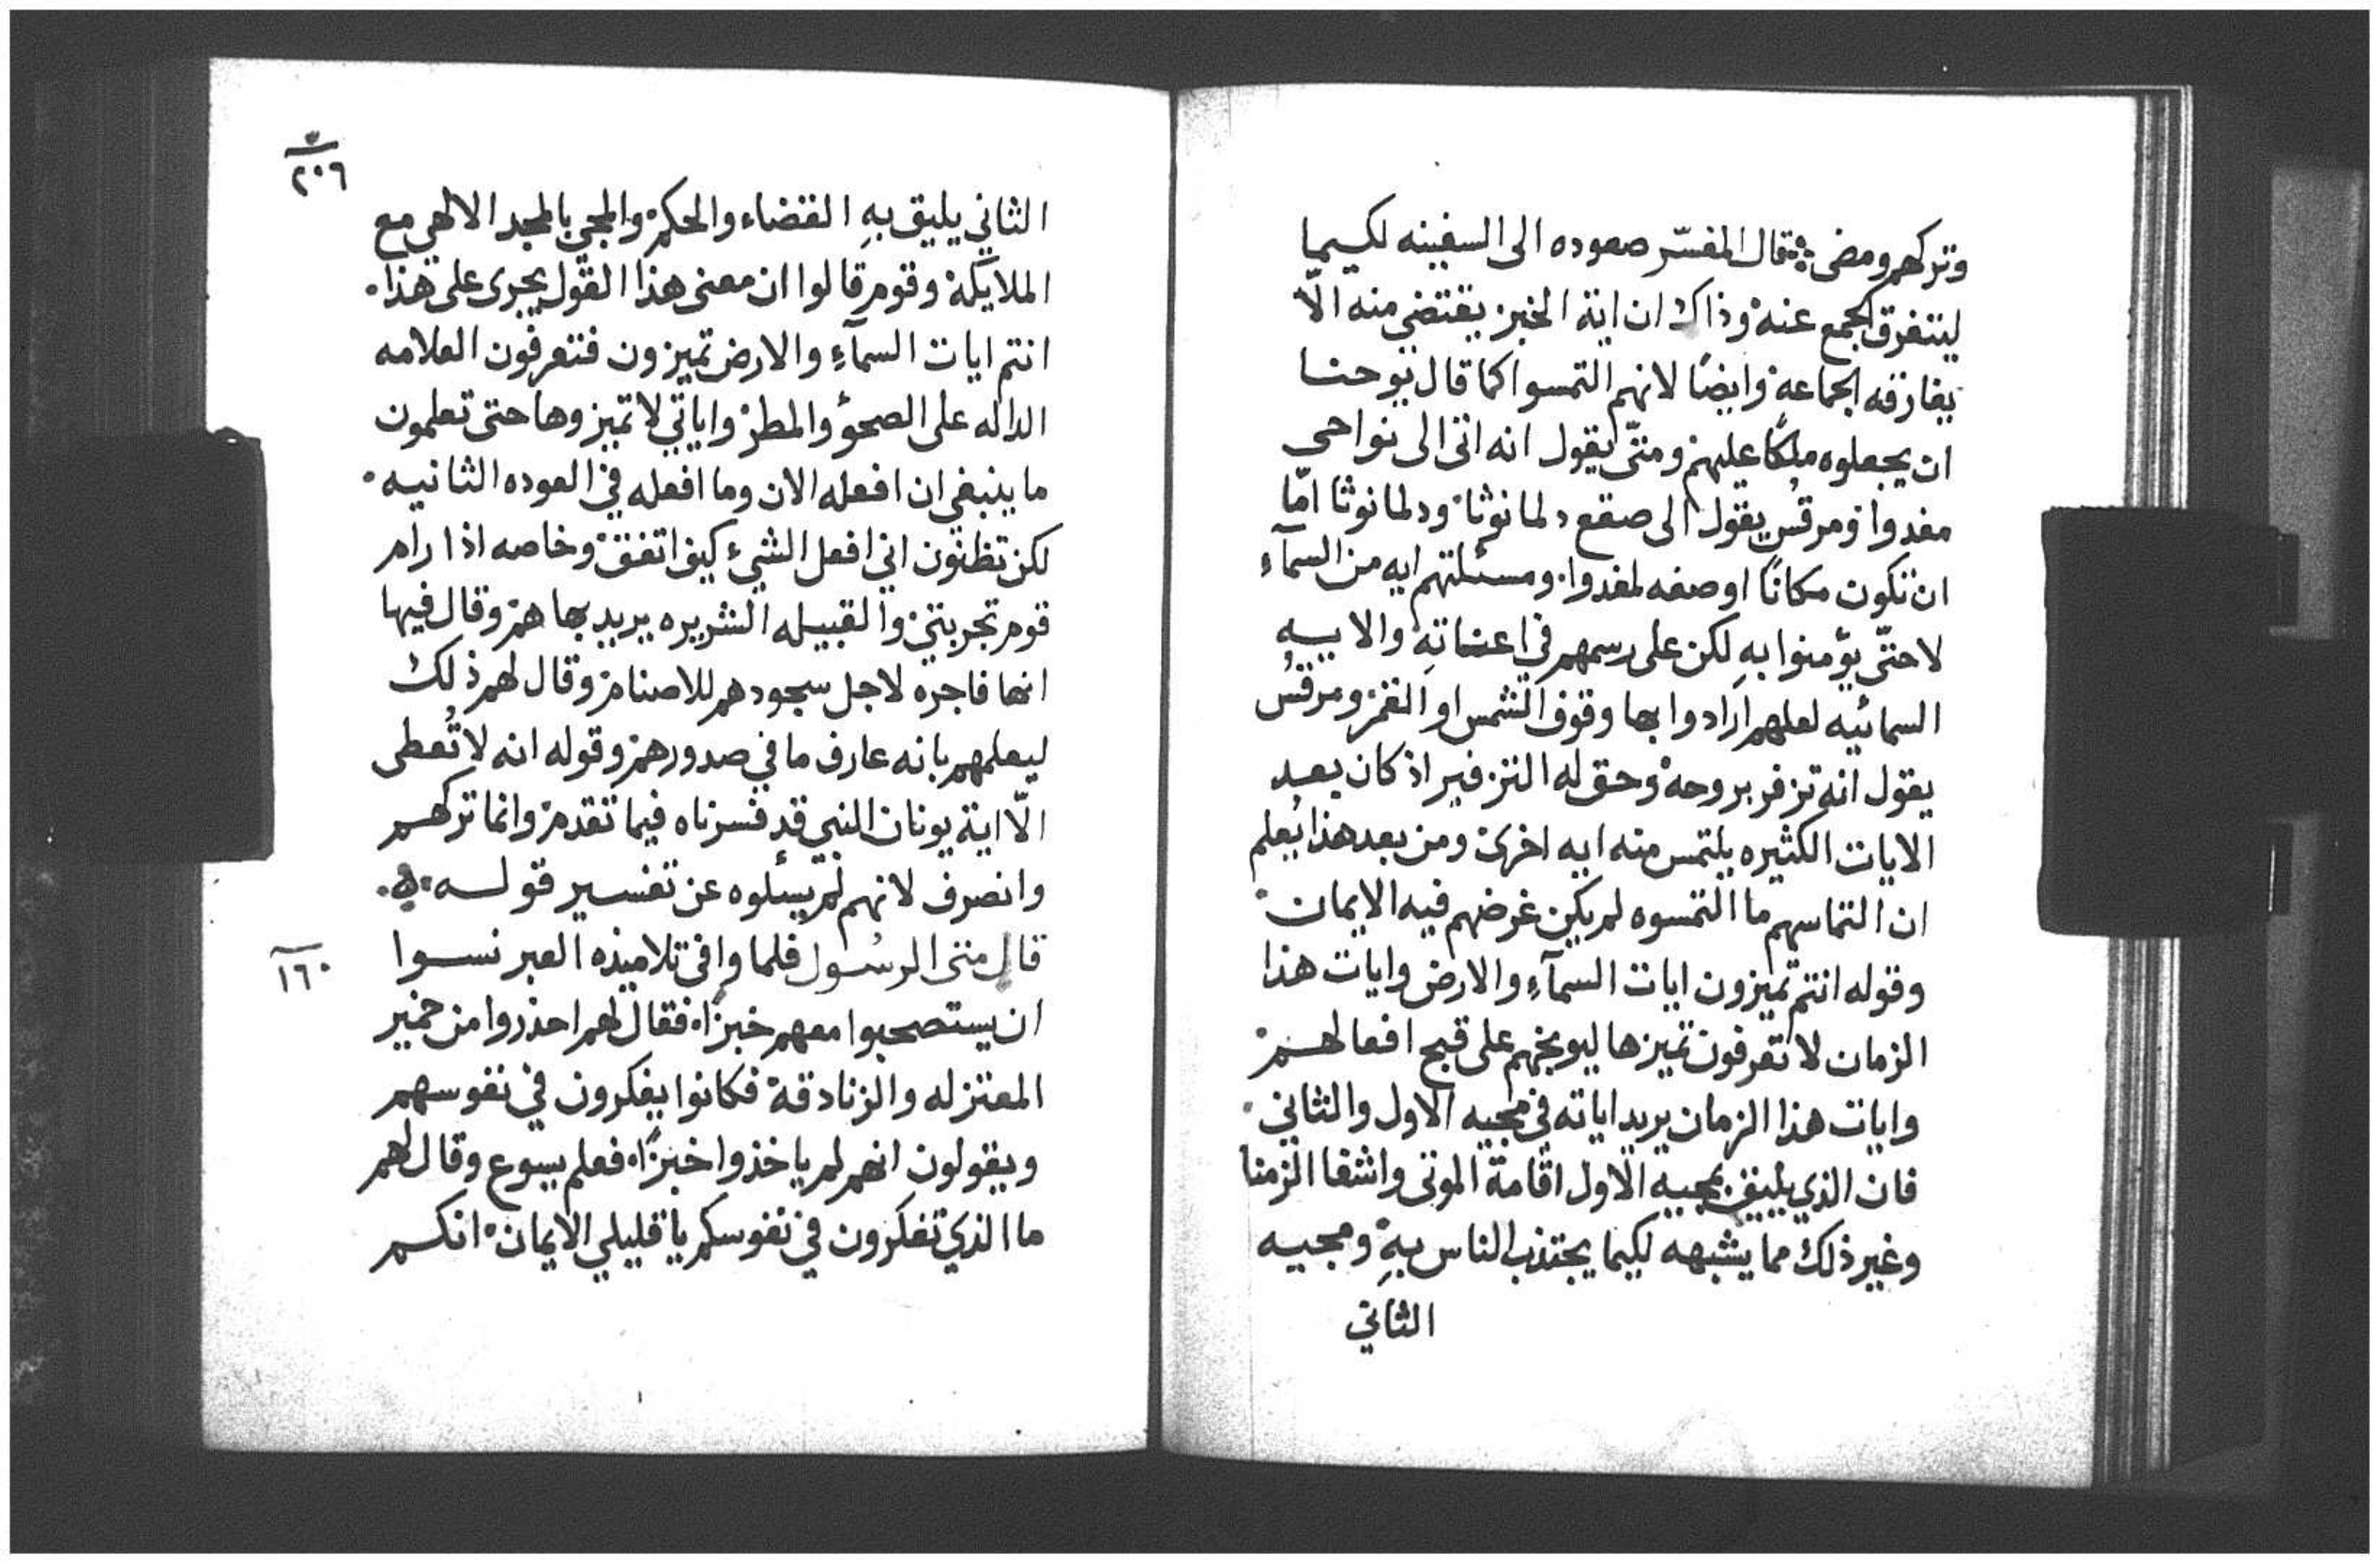 وتركهم ومضى قال المفسّر صعوده الى السفينه لكيما
ليتفرق الجمع عنه وذاك ان اية الخبز يقتضي منه الّا
يفارقه الجماعه وايضًا لانهم التمسوا كما قال يوحنا
ان يجعلوه ملكًا عليهم ومتّى يقول انه اتى الى نواحي
مغدوا ومرقس يقول الى صقع دلمانوثا ودلمانوثا امّا
ان تكون مكانًا او صفه لمغدوا ومسئلتهم ايه من السمآء
لا حتّى يؤمنوا بهِ لكن على رسمهم في اعناتهِ والايه
السمائيه لعلهم ارادوا بها وقوف الشمس او القمر ومرقس
يقول انه تزفر بروحه وحق له التزفير اذ كان بعد
الايات الكثيره يلتمس منه ايه اخرى ومن بعد هذا يُعلم
ان التماسهم ما التمسوه لم يكن غرضهم فيه الايمان
وقوله انتم تميزون ايات السمآءِ والارض وايات هذا
الزمان لا تعرفون تميزها ليوبخهم على قبح افعالهم
وايات هذا الزمان يريد اياته في مجيه الاول والثاني
فان الذي يليق بمجيه الاول اقامة الموتى واشفا الزمنا
وغير ذلك مما يشبهه لكيما يجتذب الناس بهِ ومجيه
الثاني
٢٠٦
الثاني يليق بهِ القضاء والحكم والمجي بالمجد الالهي مع
الملايكة وقوم قالوا ان معنى هذا القول يجرى على هذا
انتم ايات السمآءِ والارض تميزون فتعرفون العلامه
الداله على الصحو والمطر واياتي لا تميزوها حتى تعلمون
ما ينبغي ان افعله الان وما افعله في العوده الثانيه
لكن تظنون اني افعل الشيء كيف اتفق وخاصه اذا رام
قوم تجربتي والقبيله الشريره يريد بها هم وقال فيها
انها فاجره لاجل سجودهم للاصنام وقال لهم ذلك
ليعلمهم بانه عارف ما في صدورهم وقوله انه لا تُعطى
الّا اية يونان النبي قد فسرناه فيما تقدم وانما تركهم
وانصرف لانهم لم يسئلوه عن تفسير قوله
قال متى الرسول فلما وافى تلاميذه العبر نسوا
١٦٠
ان يستصحبوا معهم خبزًا فقال لهم احذروا من خمير
المعتزله والزنادقة فكانوا يفكرون في نفوسهم
ويقولون انهم لم ياخذوا خبزًا فعلم يسوع وقال لهم
ما الذي تفكرون في نفوسكم يا قليلي الايمان انكم